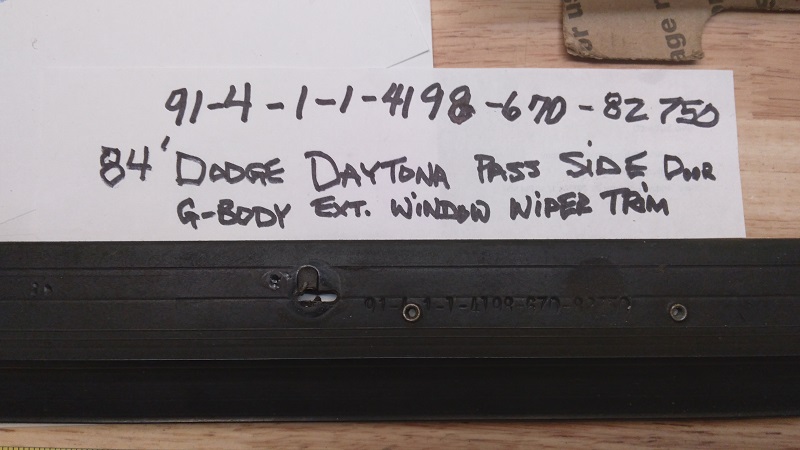 or us
age r
91-4-1-1-4198-670-82750
84' DODGE DAYTONA PASS SIDE DOOR
G-BODY EXT. WINDOW WIPER TRIM
91-4-1-1-4198-670-82750